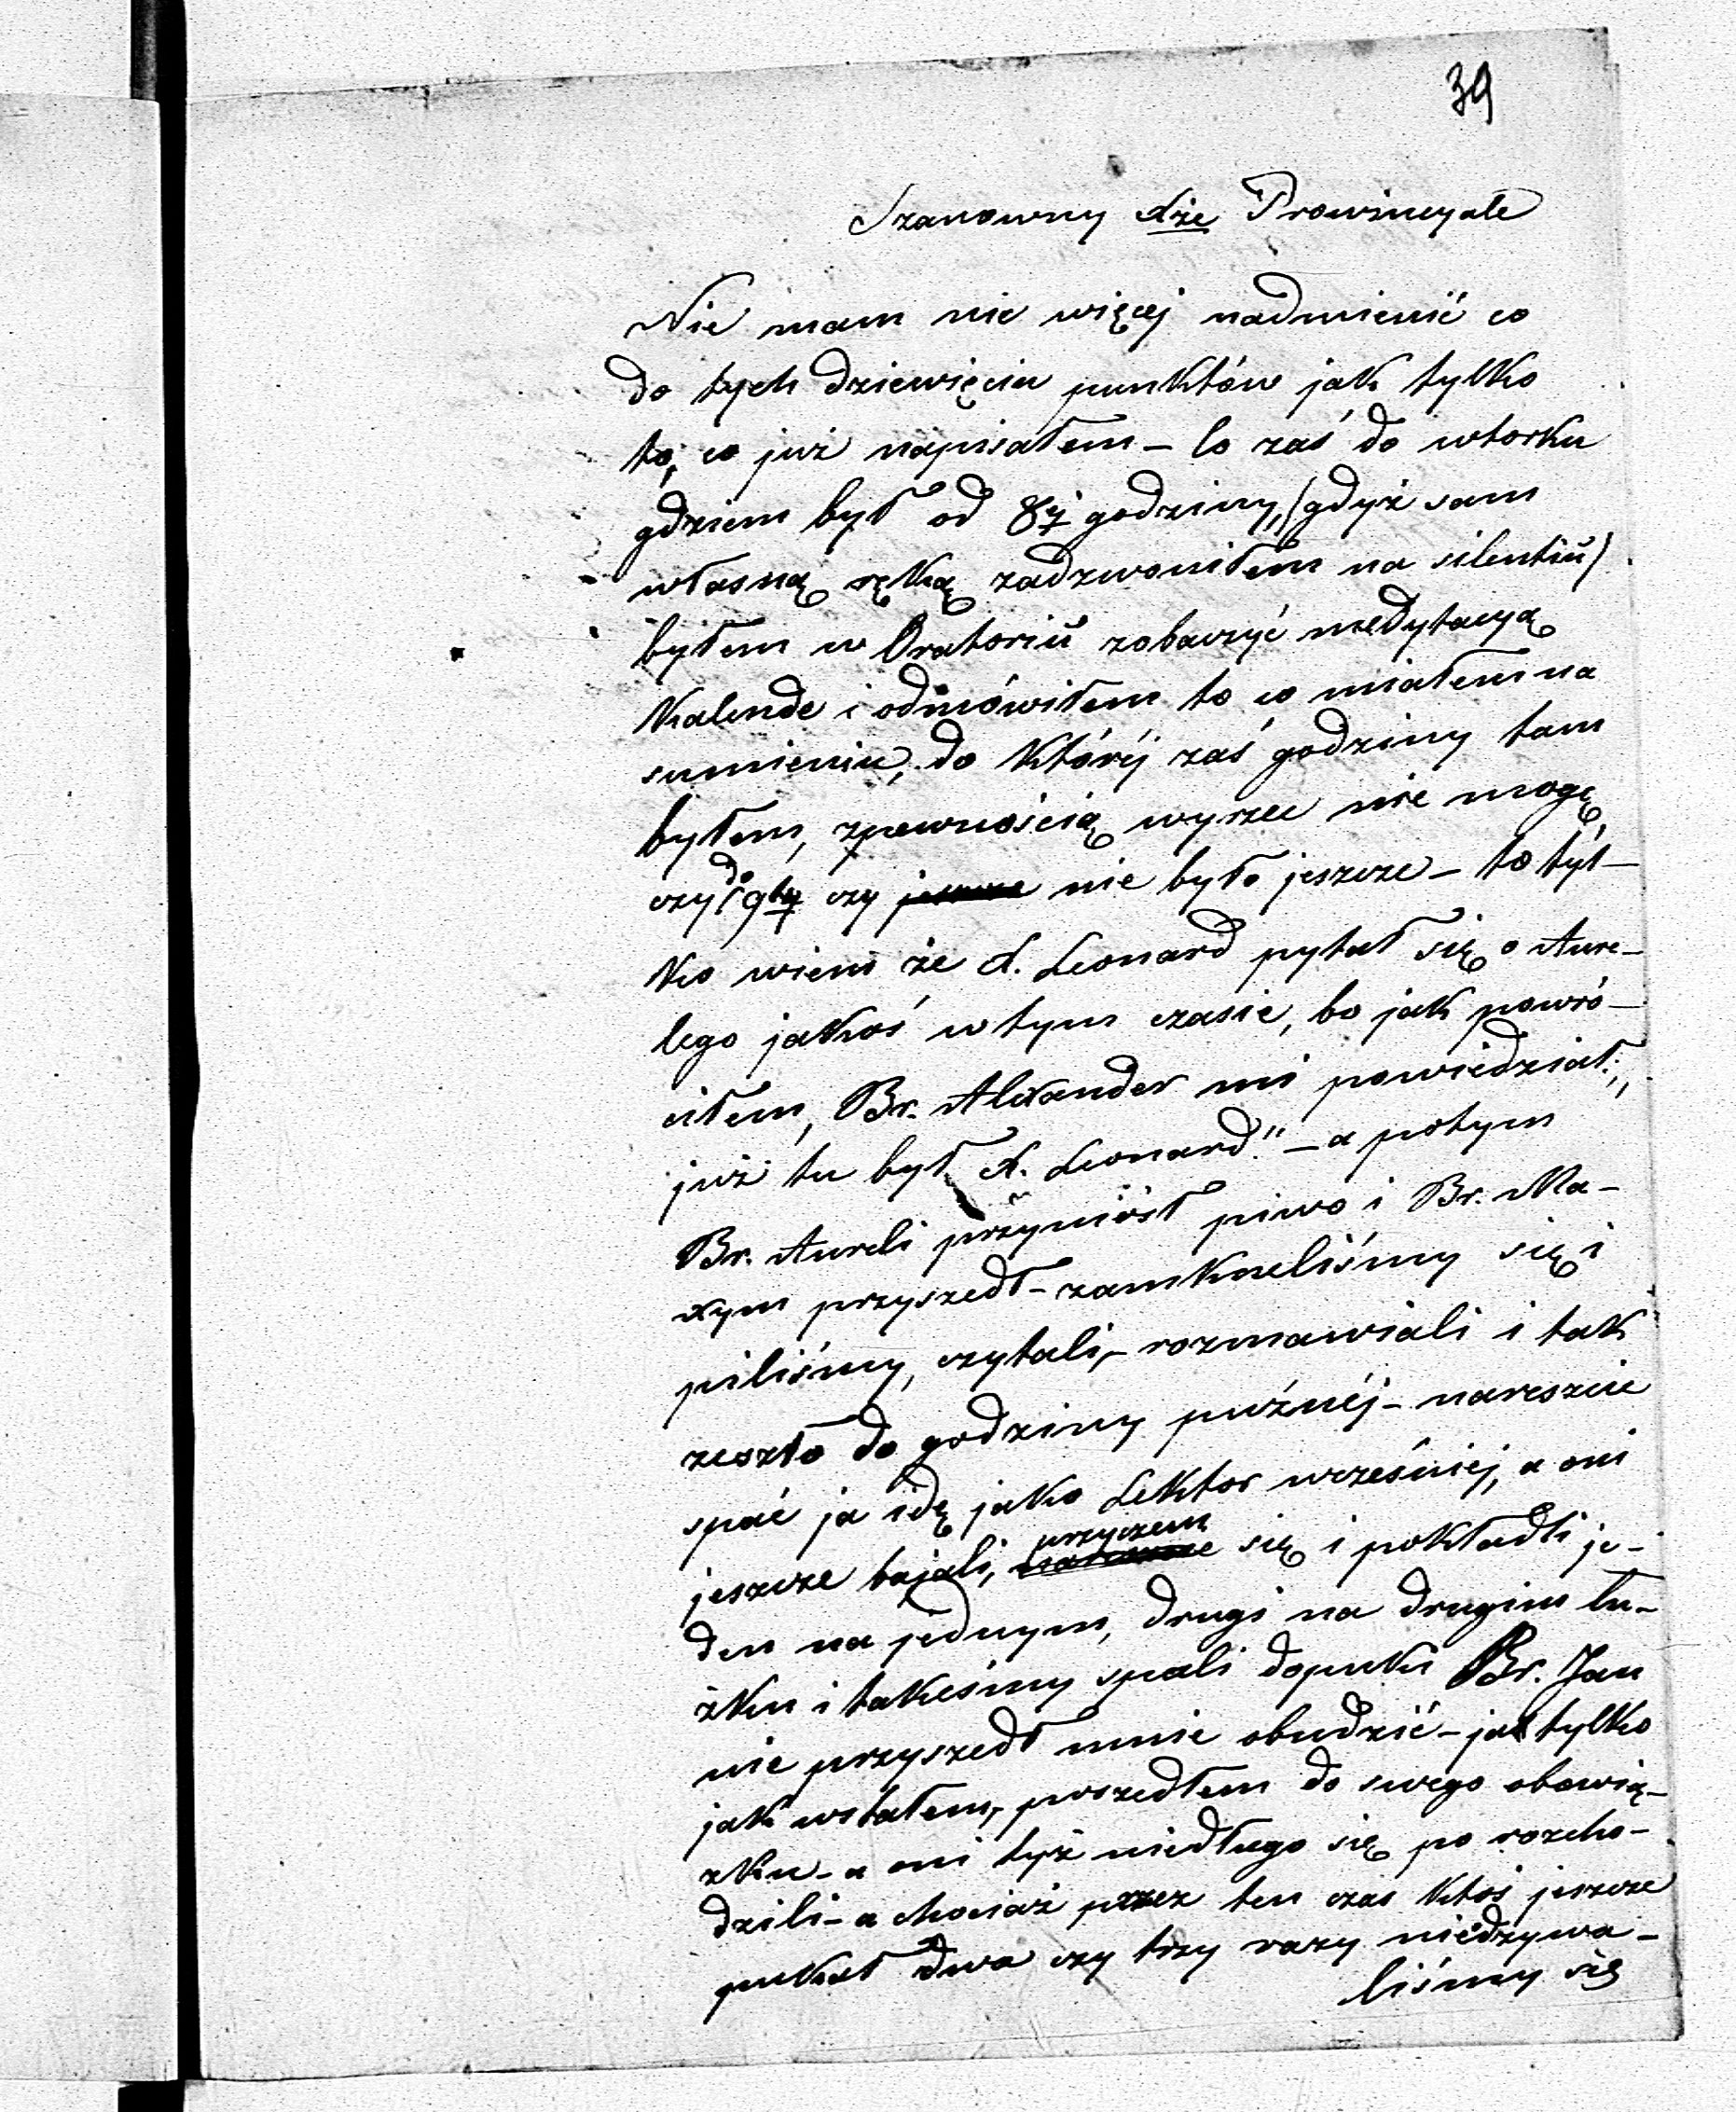 39
Szanowny Xże Prowincyale
Nie mam nic więcej nadmienić co
do tych dziewięciu punktów jak tylko
to, co już napisałem – Co zaś do wtorku
gdziem był od 8éj godziny, (gdyż sam
własną ręką zadzwoniłem na silentiũ)
byłem w Oratoriũ zobaczyć medytacyą
Kalende i odmówiłem to co miałem na
sumieniu, do któréj zaś godziny tam
byłem, zpewnością wyrzec nie mogę
czy do 9téj czy nie było jeszcze – to tyl–
ko wiem że X. Leonard pytał się o Aure–
lego jakoś w tym czasie, bo jak powró–
ciłem, Br. Alexander mi powiedział: „
już tu był X. Leonard." – a potym
Br. Aureli przyniósł piwo i Br. Ma–
xym przyszedł – zamkneliśmy się i
piliśmy, czytali, – rozmawiali i tak
zeszło do godziny puźnéj – nareszcie
spać ja idę jako Lektor wcześniej, a oni
jeszcze bajali, przyczem się i pokładli je–
den na jednym, drugi na drugim łu–
żku i takeśmy spali dopuki Br. Jan
nie przyszedł mnie obudzić – ja tylko
jak wstałem, – poszedłem do swego obowią–
zku – a oni tyż niedługo się po rozcho–
dzili – a chociaż przez ten czas ktoś jeszcze
pukał dwa czy trzy razy nieodzywa–
liśmy się